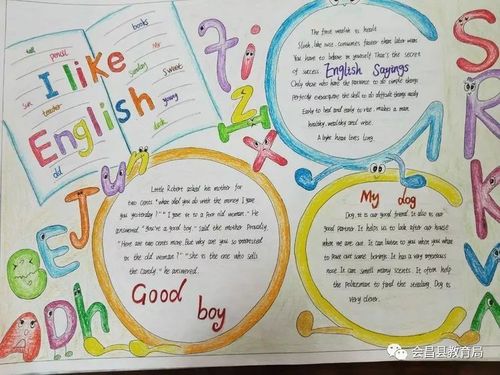 tall
pencil
books
Mr
sun
Sunday
Sweet
I like
teacher
young
English
desk
old
The first wealth is health.
Sloth, like rust, consumes faster than labor wears.
You have to believe in yourself. That's the secret
of success. English Sayings
Only those who have the patience to do simple things
perfectly ever acquire the skill to do difficult things easily.
Early to bed and early to rise, makes a man
healthy, wealthy and wise.
A light heart lives long.
Little Robert asked his mother for
two cents. "What did you do with the money I gave
you yesterday?" "I gave it to a poor old woman." He
answered. "You're a good boy," said the mother. Proudly.
"Here are two cents more. But why are you so interested
in the old woman?" "She is the one who sells
the candy." he answered.
Good
boy
My dog
Dog, it is our good friend. It also is our
good partner. It helps us to look after our house
when we are out. It can listen to you when you whant
to pour out some borings. It has a very sensitive
nose. It can smell many scents. It often help
the policeman to find the stealing. Dog is
very clever.
会昌县教育局